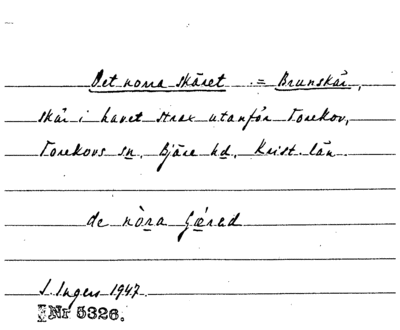 Det norra skäret = Brunskär,
skär i havet strax utanför Torekov,
Torekovs sn, Bjäre hd, Krist. län
de nòra
I. Ingers 1947.
Nr 5326.